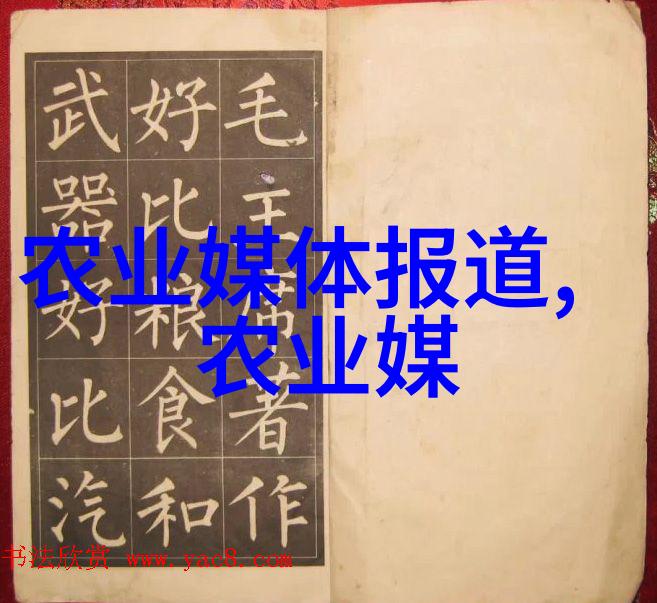 毛主席著作
好比粮食和
武器好比汽
农业媒体报道,
农业媒
书法欣赏 www.yac8.com